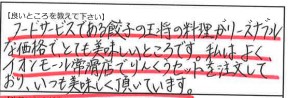 【良いところを教えて下さい】
フードサービスである餃子の王将の料理がリーズナブル
な価格でとても美味しいところです。私はよく
イオンモール常滑店でりんくうセットを注文して
おり、いつも美味しく頂いています。